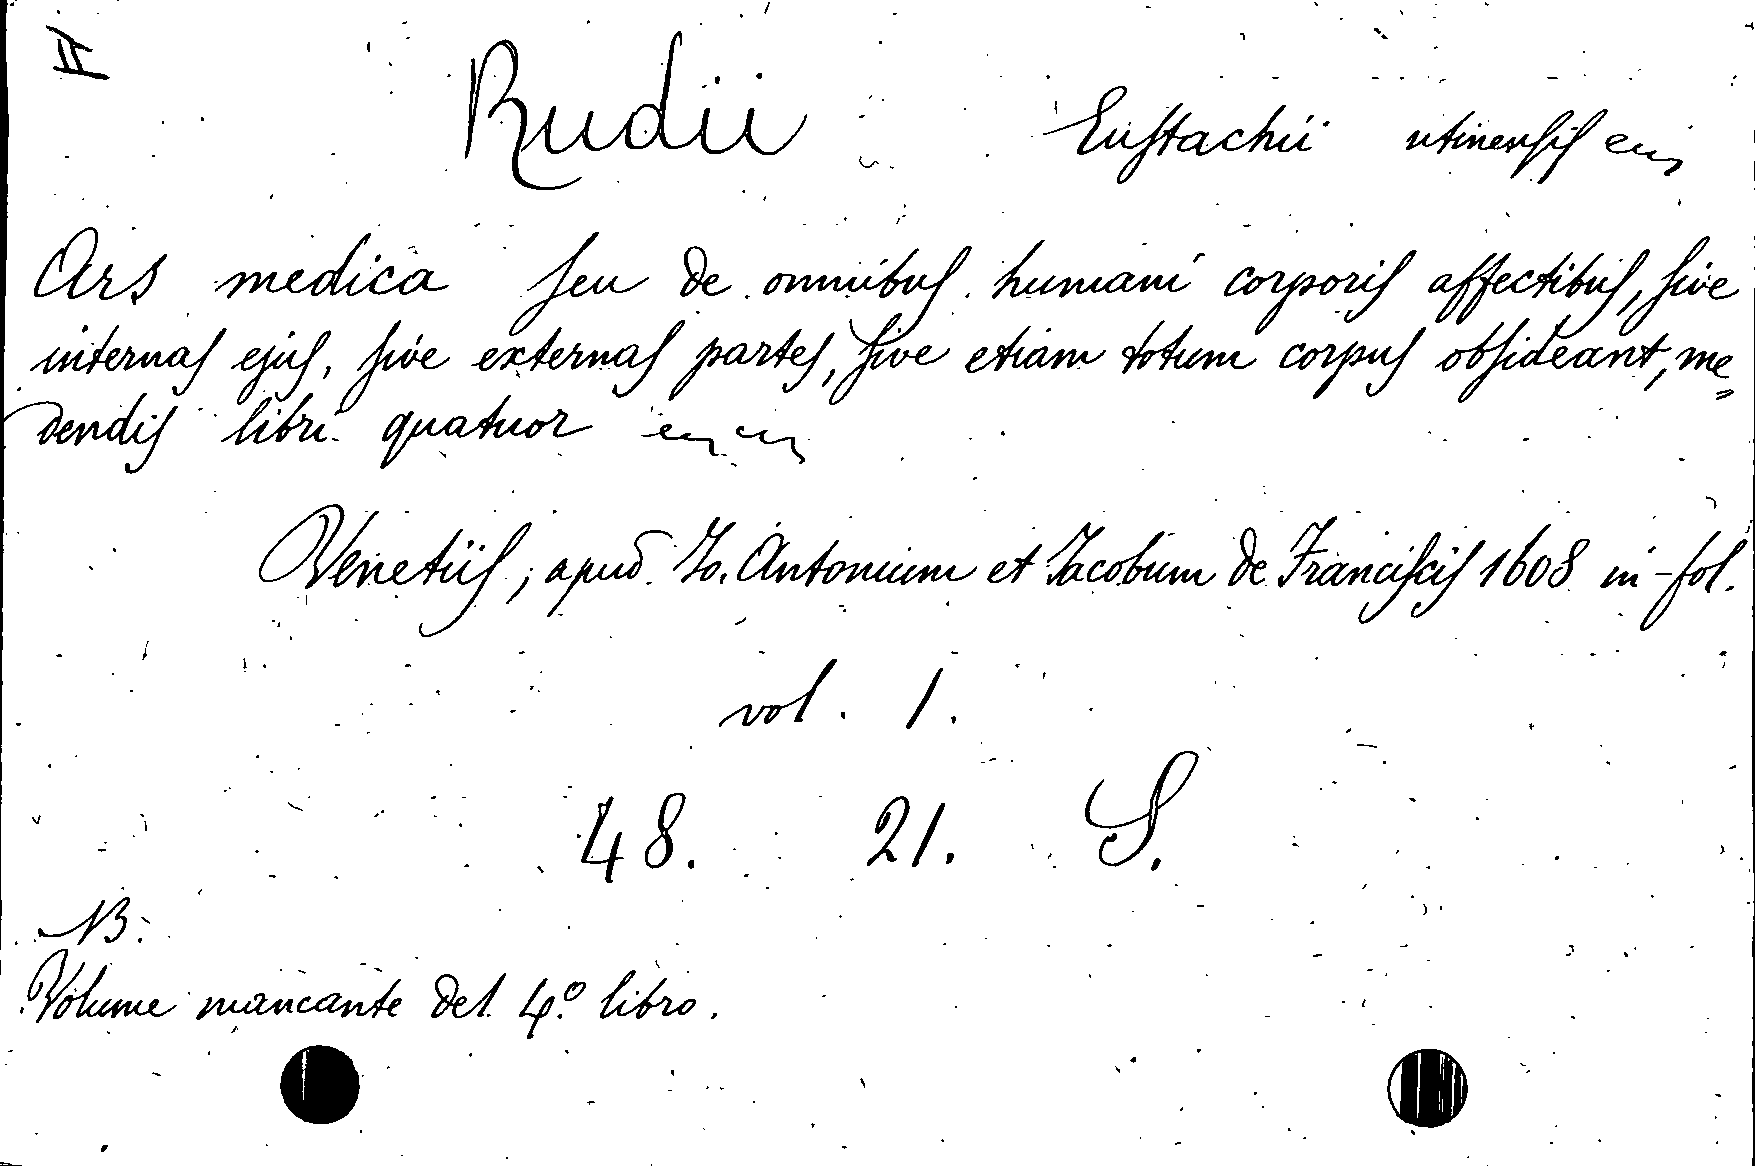 II
Rudii Eustachii utinensis
Ars medica seu de omnibus humani corporis affectibus, sive
internas ejus, sive externas partes, sive etiam totum corpus obsideant, me=
dendis libri quatuor
Venetiis, apud Jo. Antonium et Jacobum de Franciscis 1608 in-fol.
vol. 1.
48. 21. S.
NB:
Volume mancante del 4.º libro.